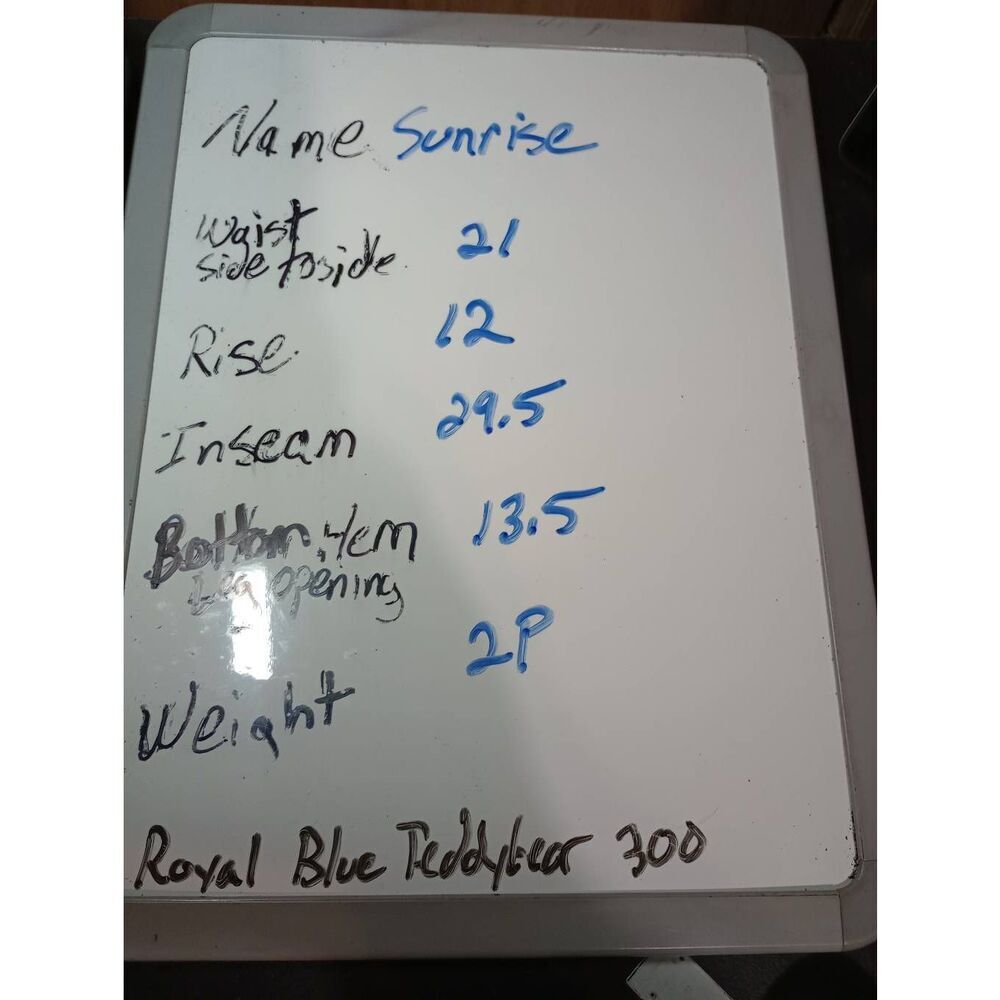 Name Sunrise
Waist
side to side 21
Rise 12
Inseam 29.5
Bottom Hem 13.5
Leg opening
Weight 2P
Royal Blue Teddybear 300